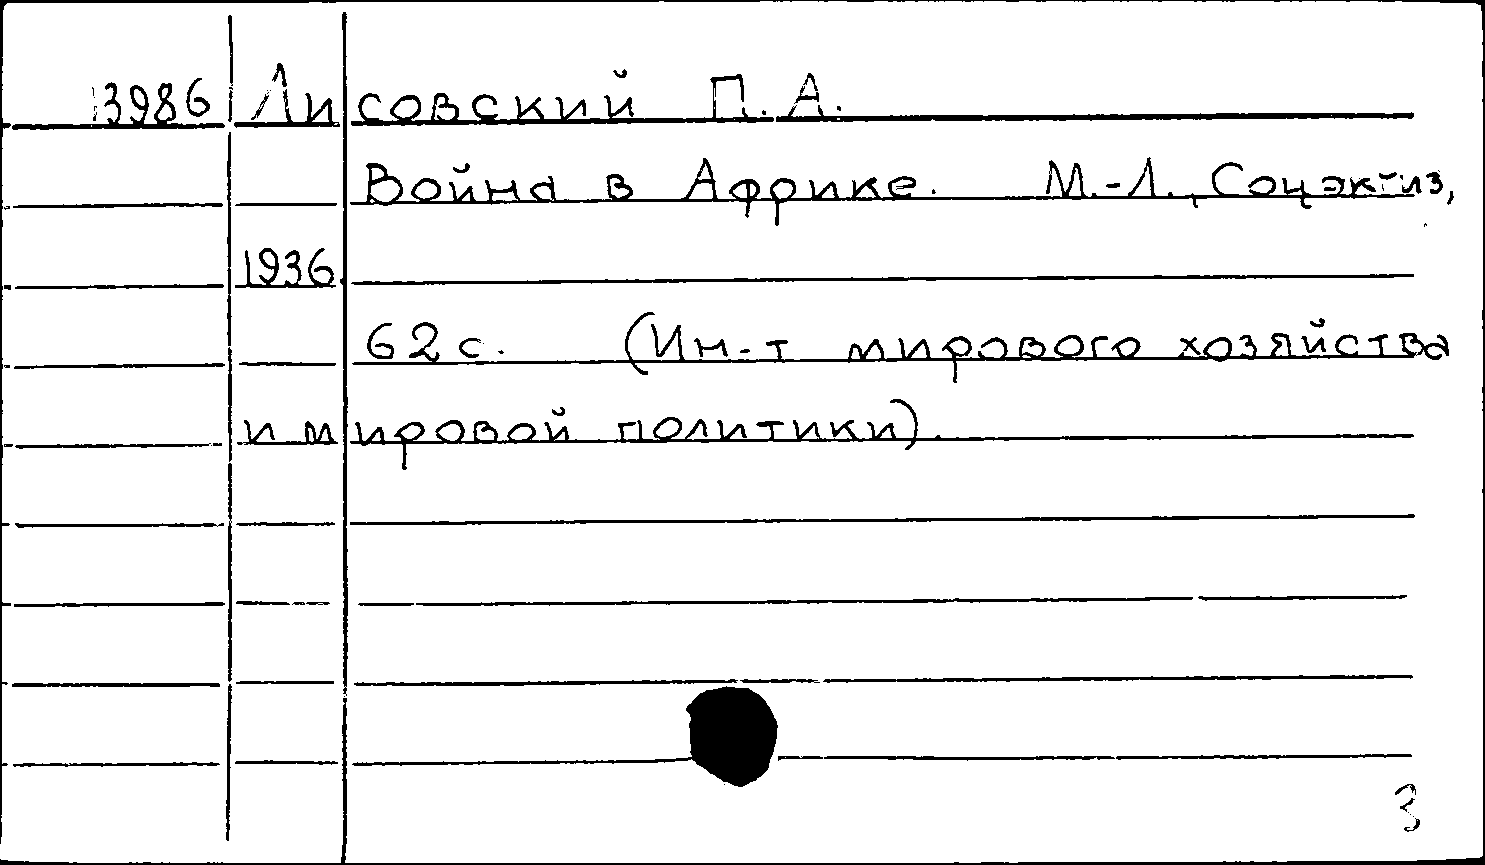 13986 Лисовский П. А.
Война в Африке. М.-Л., Соцэкгиз,
1936.
62 с. (Ин-т мирового хозяйства
и мировой политики).
3